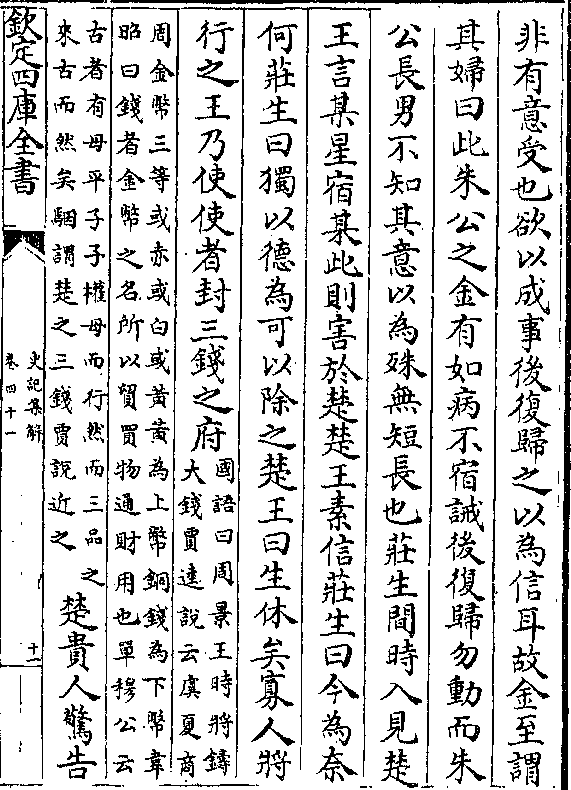 非有意受也欲以成事後復歸之以為信耳故金至謂
其婦曰此朱公之金有如病不宿誡後復歸勿動而朱
公長男不知其意以為殊無短長也莊生間時入見楚
王言某星宿某此則害於楚楚王素信莊生曰今為奈
何莊生曰獨以德為可以除之楚王曰生休矣寡人將
行之王乃使使者封三錢之府
國語曰周景王時將鑄
大錢賈逵說云虞夏商
周金幣三等或赤或白或黃黃為上幣銅錢為下幣韋
昭曰錢者金幣之名所以貿買物通財用也單穆公云
古者有母平子子權母而行然而三品之
來古而然矣駰謂楚之三錢賈說近之
楚貴人驚告
欽定四庫全書
史記集解
卷四十一
十一